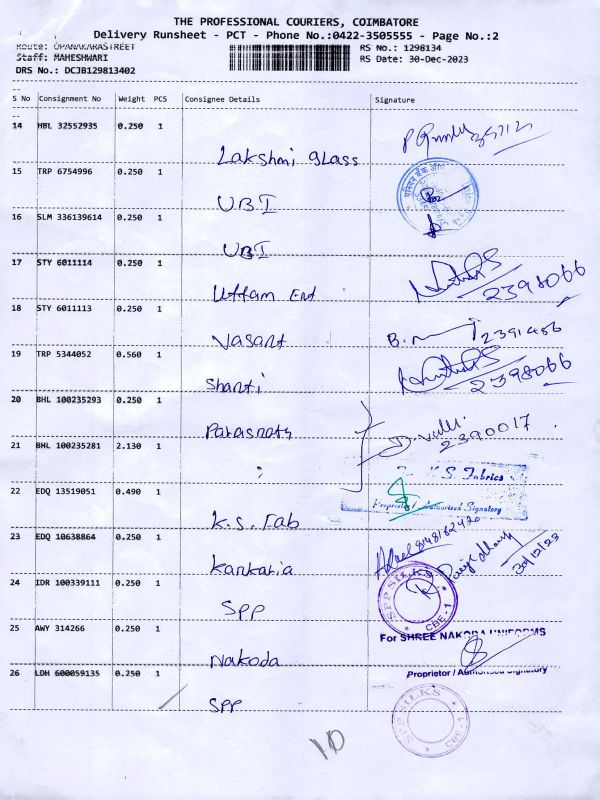 THE PROFESSIONAL COURIERS, COIMBATORE
Delivery Runsheet - PCT - Phone No.:0422-3505555 - Page No.:2
Route: OPANAKARASTREET RS No.: 1298134
Staff: MAHESHWARI RS Date: 30-Dec-2023
DRS No.: DCJB129813402
S No Consignment No Weight PCS Consignee Details Signature
14 HBL 32552935 0.250 1
Lakshmi glass
15 TRP 6754996 0.250 1
UBI
16 SLM 336139614 0.250 1
UBI
17 STY 6011114 0.250 1
Uttam Ent 2398066
18 STY 6011113 0.250 1
Vasant B. 2391456
19 TRP 5344052 0.560 1
Shanti 2398066
20 BHL 100235293 0.250 1
Parasnath D. Valli 2390017
21 BHL 100235281 2.130 1
" K.S. Fabrics
22 EDQ 13519051 0.490 1 Proprietor / Authorised Signatory
K.S. Fab
23 EDQ 10638864 0.250 1
Kankaria 30/12/23
24 IDR 100339111 0.250 1 SPP SILKS CBE-1
SPP
25 AWY 314266 0.250 1 For SHREE NAKODA UNIFORMS
Nakoda
26 LDH 600059135 0.250 1 Proprietor / Authorised Signatory
SPP SPP SILKS CBE-1
10